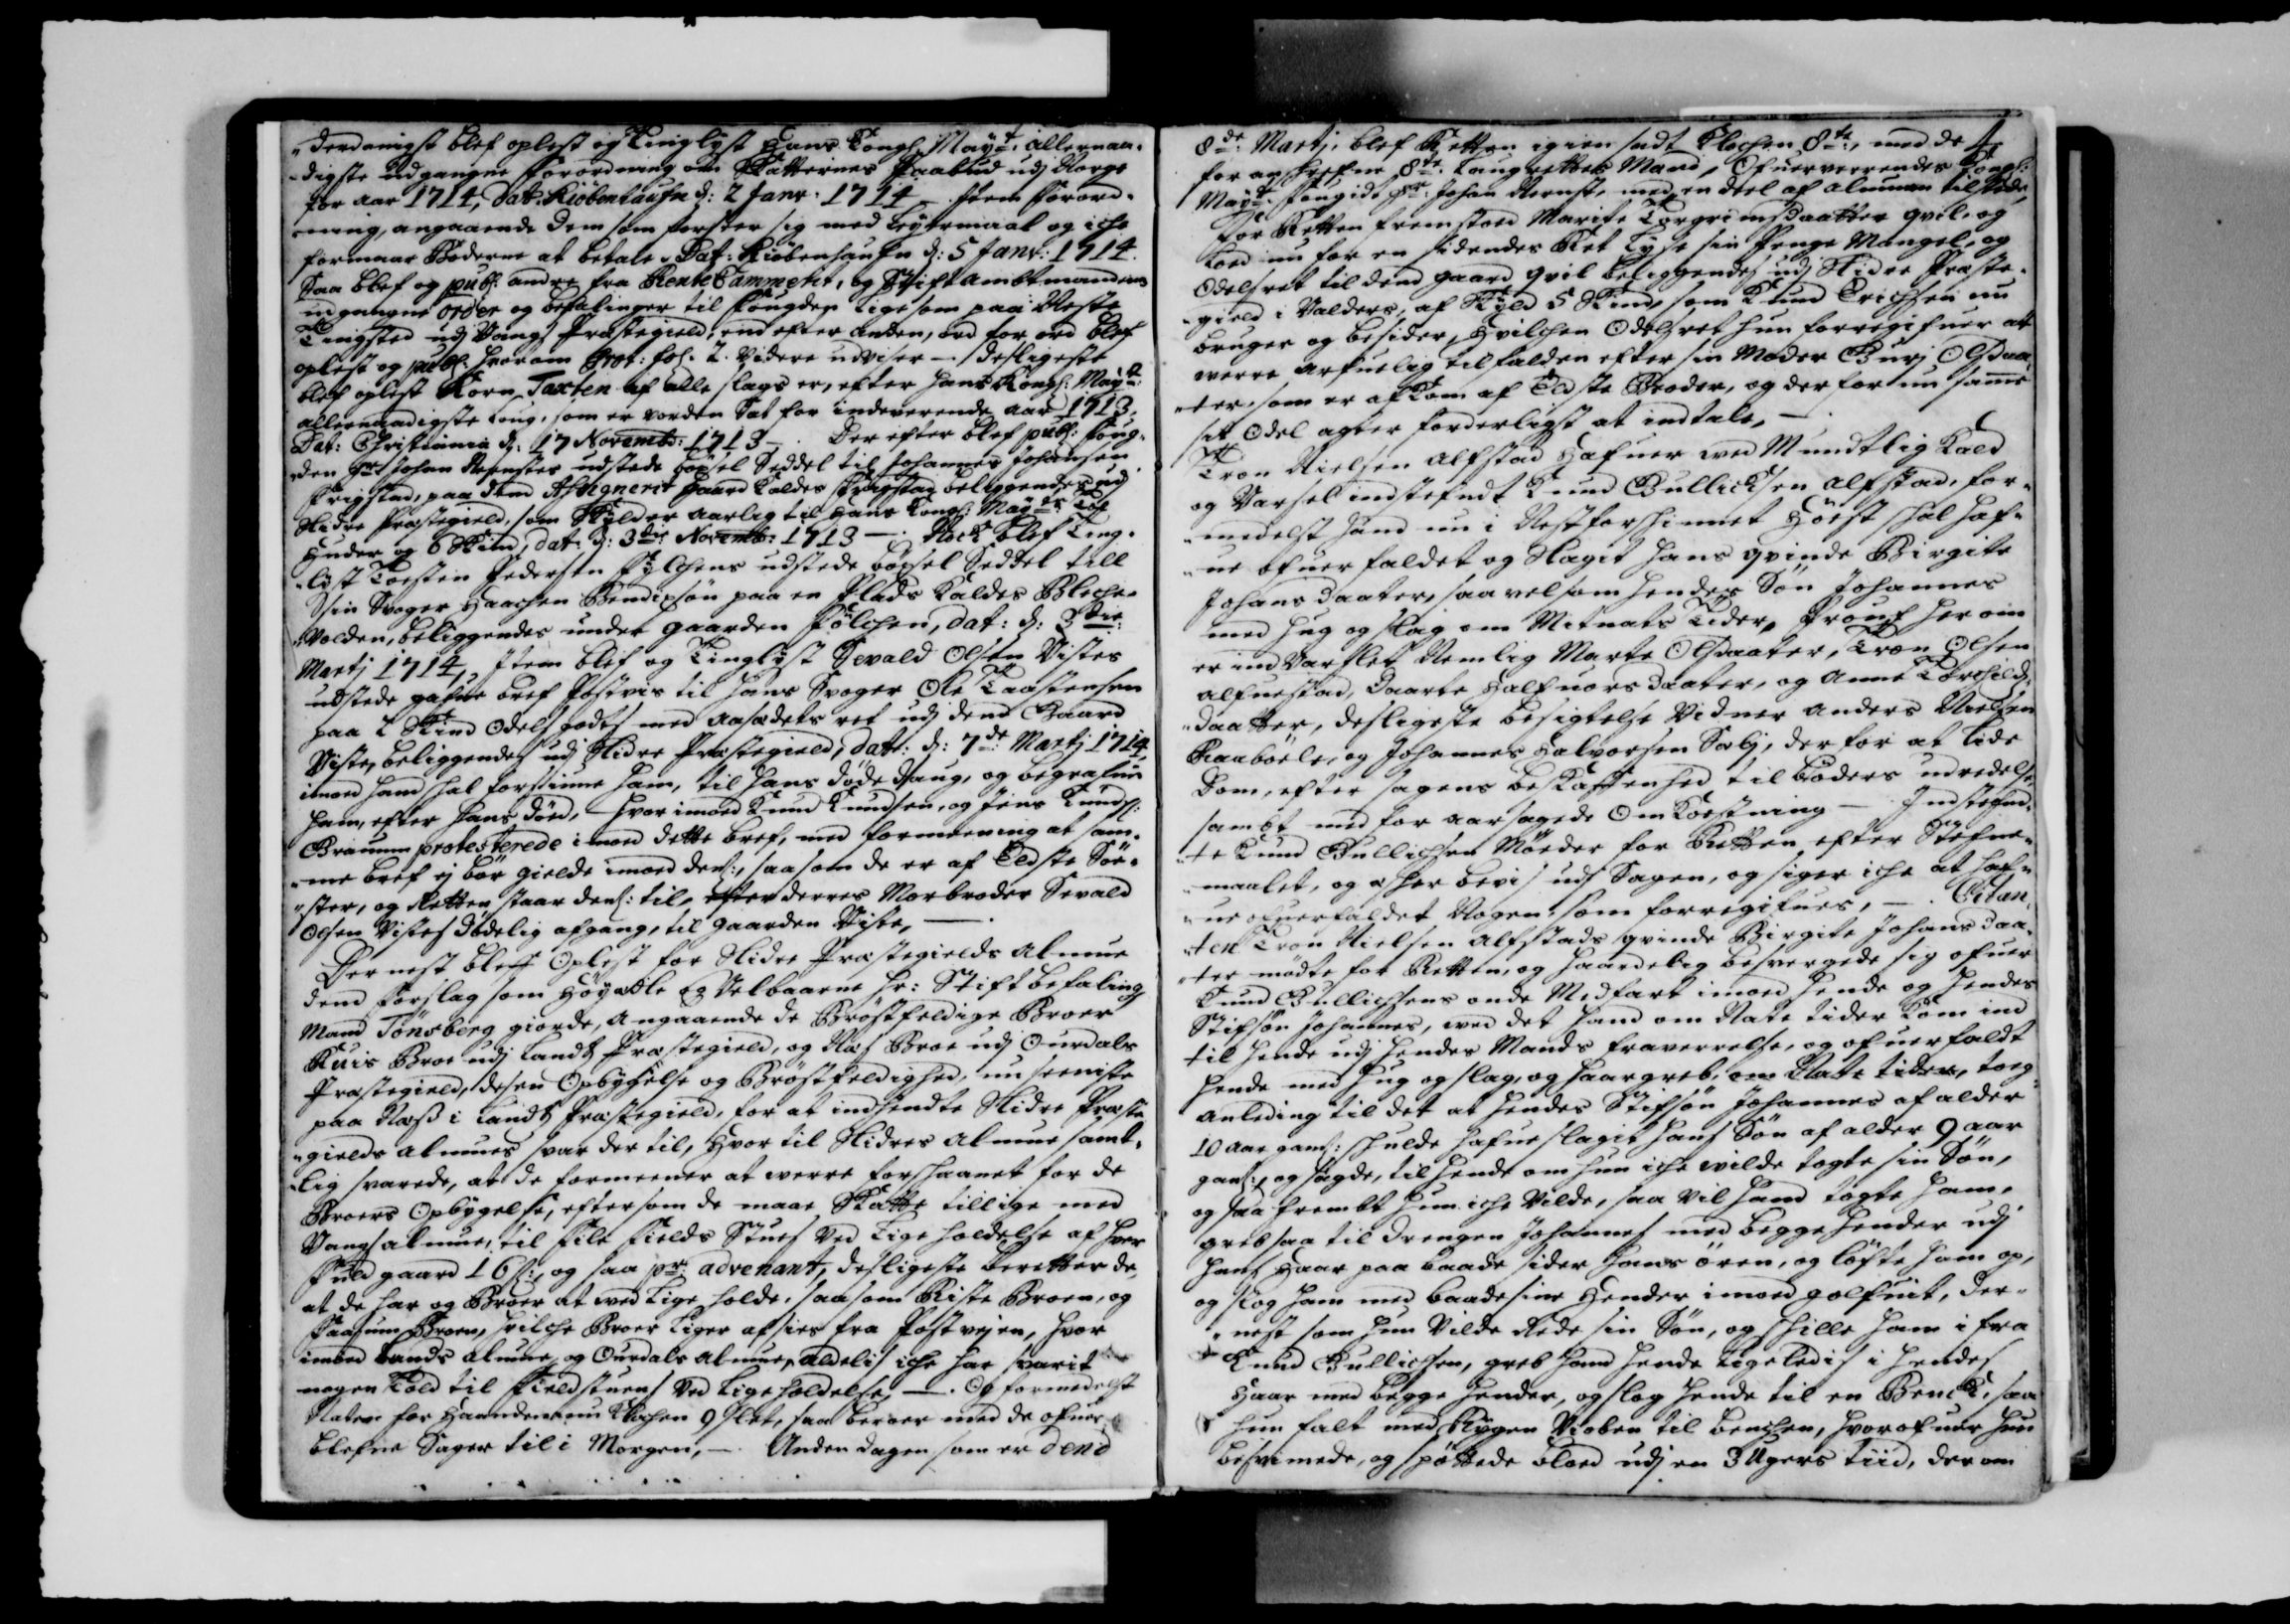 derdanigst blef oplest og Tinglyst Hans Kongl: May:t allernaa-
digste udgangne Forordning om Skatternes Paabud udj Norge
for aar 1714, Dat: Kiöbenhaufn d: 2 Janv: 1714 — Item Forord-
ning, angaaende dem som forseer sig med Leyermaal og iche
formaar Böderne at betale. Dat: Kiöbenhaufn d: 5 Janv: 1714.
Saa blef og publ: andre fra Rente Cammeret, og Stiftambtmandens
udgangne Order og befalinger til Fougden ligesom paa Neste
Tingsted udj Vangs Præstegield, een efter anden, ord for ord blef
oplest og publ: hvorom Prot: fol. 2. Videre udviser — Desligeste
blef oplest Korn Taxten af alle slags er, efter Hans Kongl: May:ts
allernaadigste Loug, som er vorden Sat for indeverende aar 1713.
Dat: Christiania d: 17 Novembr: 1713 — Der efter blef publ: Foug-
den Sr Johan udstede böxel Seddel til Johannes Johansen
Frigstad, paa dend Assignerit gaard Kaldes Frigstad beliggendes udj
Slidre Præstegield, som Skylder aarlig til Hans Kongl: May:ts Toe
Huder og 6 Skind, dat: d: 3die Novemb: 1713 — Noch blef Ting-
lyst Torsten Pedersen Fölchens udstede böxel Seddel till
Sin Svoger Haachen Bendixsön paa en Plads Kaldes Bleche-
Volden, beliggendes under gaarden Fölchen, dat: d: 3die
Martj 1714, Item blef og Tinglyst Sevald Olsen Vistes
udstede gafue bref Postvis til Hans Svoger Ole Taastensen
paa 2 Skind Odelsgodts med aasædets ret udj dend Gaard
Viste, beliggendes udj Slidre Præstegield, dat: d: 7de Martj 1714
imod hand skal forsiune ham, til Hans döde Daug, og begrafue
ham, efter Hans död, hvorimod Knud Knudsen, og Jens Knuds:
Brauum protesterede imod dette bref, med formeening at sam-
me bref ej bör gielde imod dem:, saasom de er af Eldste Söe-
ster, og Retten staar dem: til, efter derres Morbroder Sevald
Olsen Vistes dödelig afgang, til gaarden Viste, —
Dernest bleff Oplest for Slidre Præstegields Almue
dend forslag som Höyædle og Velbaarne Hr: Stiftbefalings
Mand Tönsberg giorde, angaaende de Bröstfeldige Broer
Ruis Broe udj Lands Præstegield, og Næs Broe udj Ourdals
Præstegield, desen Opbygelse og Bröstfeldighed, nu seeniste
paa Næss i Lands Præstegield, for at indhendte Slidre Præste-
gields almues svar der til, Hvor til Slidres almue samt-
lig svarede, at de formeener at werre forskaanet for de
Broers Opbygelse, eftersom de maae Skatte tillige med
Vangs almue, til File Fields Stues Ved Lige holdelse af hver
Fuld gaard 16 s:, og saa pr: advenant, desligeste beretter de,
at de har og Broer at ved Lige holde, saasom Riste Broen, og
Faasum Broen, hvilche Broer liger afsies fra Postvejen, hvor
imod Lands almue og Ourdals almue, aldelis iche har svarit
nogen Told til Fieldstuens Ved Lige holdelse, — Og formedelst
Naten for Haanden nu Klochen 9 slet, saa beroer med de ofuer-
blefne Sager til i Morgen, — Anden dagen som er Dend

8de: Martj, blef Retten igien sadt Klochen 8te:, med de
for anskrefne 8te. Laugrettes Mænd, Ofuerverrendes Kongl:
May:ts Fougide Sr: Johan, med en deel af almuen tilstede,
for Retten fremstod Marite Torgrimsdaatter qvil, og
lod nu for en sidendes Ret lyse sin Penge Mangel, og
Odelsret til dend gaard qvil beliggendes udj Slidre Præste-
gield i Valders, af Skyld 5 Skind, som Knud Erichsen nu
bruger og besider, Hvilchen Odelsret hun forregifuer at
werre arfuelig tilfalden efter sin Moder Gurj Olsdaa-
ter, som er afkom af Eldste Broder, og derfor nu samme
sit Odel agter forderligst at indtale, —
Tron Nielsen alfstad Hafuer ved Mundtlig Kald
og Varsel indstefnt Knud Gullichsen alfstad, for-
medelst Hand nu i Nestforskinnet Höest skal haf-
ue ofuerfaldet og Slagit hans qvinde Birgite
Johansdaater, saavel som hendes Sön Johannes
med Hug og slag om Mitnats Tider, Prouf herom
er ind Varslet Nemlig Marte Olsdaater, Tron Olsen
alfuestad, Daarte Halfuorsdaater, og Anne Torchilds-
daatter, desligeste besigtelse Vidner Anders Nielsen
Raaboele, og Johannes Halvorsen Sæbj, derfor at lide
Dom, efter sagens beskaffenhed til böders udredelse
sambt med foraarsagede Omkostning — Indstefn-
te Knud Gullichsen Möeder for Retten efter Stefne-
maalet, og æsker bevis udj Sagen, og siger iche at haf-
ue ofuerfaldet Nogen, som forregifues, — Citan-
ten Tron Nielsen alfstads qvinde Birgite Johansdaa-
ter mödte for Retten, og haardelig besvergede sig ofuer
Knud Gullichsens onde Medfart imod hende og hendes
Stifsön Johannes, ved det hand om Nate tider kom ind
til hende udj hendes Mands fraverrelse, og ofuerfaldt
hende med hug og slag, og haargreb, om Nate tider, toeg
anleding til det at hendes Stifsön Johannes af alder
10 aar gaml: skulde hafue slagit hans Sön af alder 9 aar
gaml:, og sagde, til hende om hun iche wilde togte sin Sön,
og saa frembt hun iche Vilde, saa vil hand togte ham,
greb saa til drengen Johannes med begge hender udj
hans Haar paa baade sider hans ören, og löfte ham op,
og slog ham med baade sine Hender imod golfuit, der-
nest som hun Vilde Rede sin Sön, og skille ham i fra
Knud Gullichsen, greb hand hende ligeledis i hendes
Haar med begge hender, og slog hende til en Benck, saa
hun falt med Rygen Vioben til benchen, hvorofuer hun
besvimede, og spöttede blod udj en 3 Ugers tiid, der om